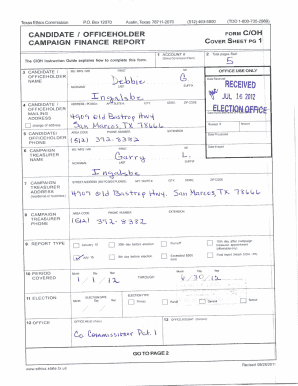 Texas Ethics Commission P.O. Box 12070 Austin, Texas 78711-2070 (512) 463-5800 (TDD 1-800-735-2989)
CANDIDATE / OFFICEHOLDER
CAMPAIGN FINANCE REPORT
FORM C/OH
COVER SHEET PG 1
The C/OH Instruction Guide explains how to complete this form.
1 ACCOUNT #
2 Total pages filed:
5
3 CANDIDATE / OFFICEHOLDER NAME
MS / MRS / MR FIRST MI
Debbie G
NICKNAME LAST SUFFIX
Ingalsbe
OFFICE USE ONLY
Date Received
RECEIVED
JUL 16 2012
ELECTION OFFICE
4 CANDIDATE / OFFICEHOLDER MAILING ADDRESS
change of address
CITY; STATE; ZIP CODE
4909 Old Bastrop Hwy
San Marcos, TX 78666
5 CANDIDATE/ OFFICEHOLDER PHONE
AREA CODE PHONE NUMBER EXTENSION
(512) 392-8382
6 CAMPAIGN TREASURER NAME
MS / MRS / MR FIRST MI
Garry L.
NICKNAME LAST SUFFIX
Ingalsbe
7 CAMPAIGN TREASURER ADDRESS
(residence or business)
CITY; STATE; ZIP CODE
4909 Old Bastrop Hwy. San Marcos, TX 78666
8 CAMPAIGN TREASURER PHONE
AREA CODE PHONE NUMBER EXTENSION
(512) 392-8382
9 REPORT TYPE
January 15
30th day before election
Runoff
15th day after campaign treasurer appointment (officeholder only)
July 15
8th day before election
Exceeded $500 limit
10 PERIOD COVERED
Month Day Year
1 / 1 / 12
THROUGH
Month Day Year
6/30/12
11 ELECTION
ELECTION DATE
Month Day Year
ELECTION TYPE
Primary
Runoff
General
Special
12 OFFICE
OFFICE HELD (if any)
Co Commissioner Pct. 1
13 OFFICE SOUGHT (if known)
GO TO PAGE 2
www.ethics.state.tx.us